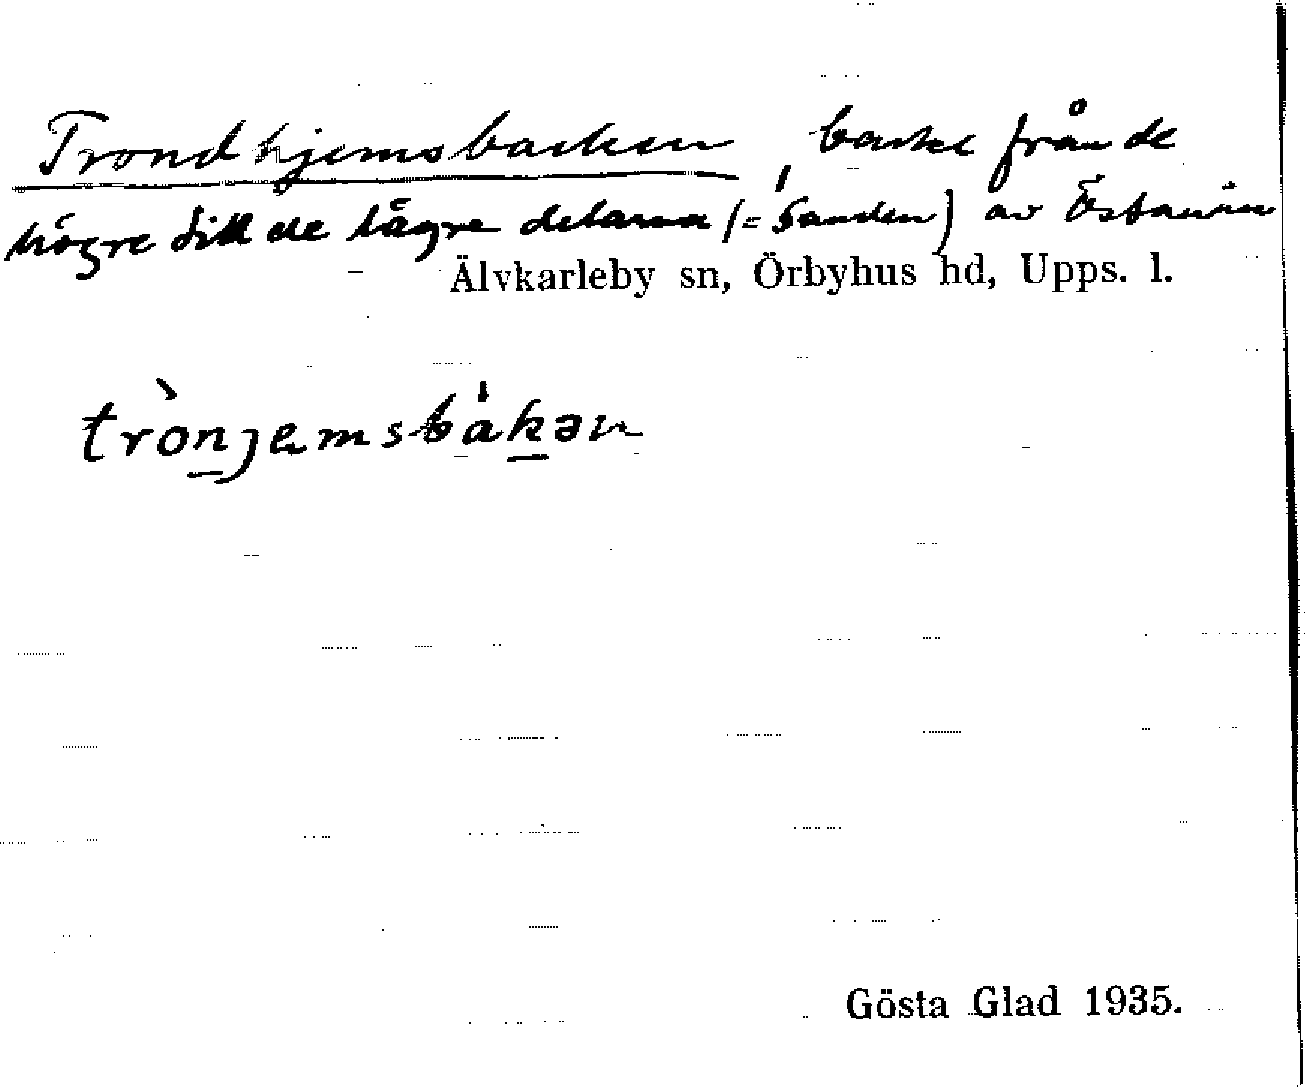 Trondhjemsbacken, backe från de
högre till de lägre delarna (= Sanden) av Östanån
Älvkarleby sn, Örbyhus hd, Upps. l.
trònjemsbákən
Gösta Glad 1935.